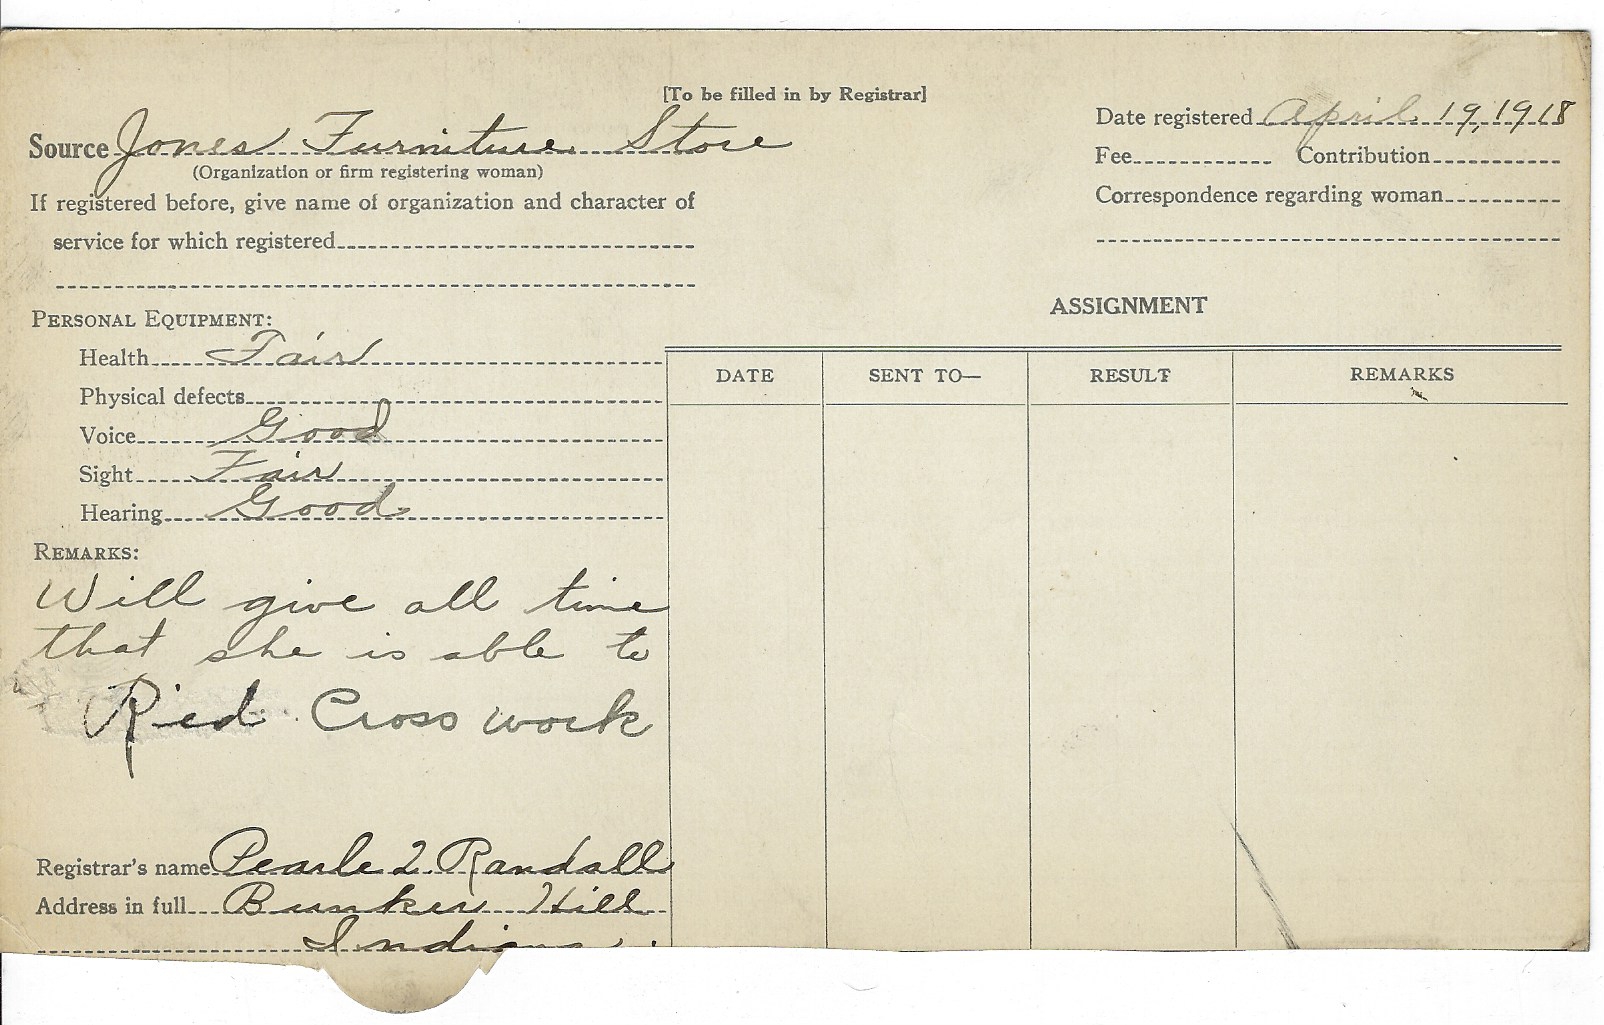 [To be filled in by Registrar]
Source Jones Furniture Store
(Organization or firm registering woman)
If registered before, give name of organization and character of
service for which registered
Date registered April 19, 1918
Fee Contribution
Correspondence regarding woman
PERSONAL EQUIPMENT:
Health Fair
Physical defects
Voice Good
Sight Fair
Hearing Good
REMARKS:
Will give all time
that she is able to
Red Cross work
Registrar's name Pearle Randall
Address in full Bunker Hill
Indiana.
ASSIGNMENT
DATE SENT TO— RESULT REMARKS